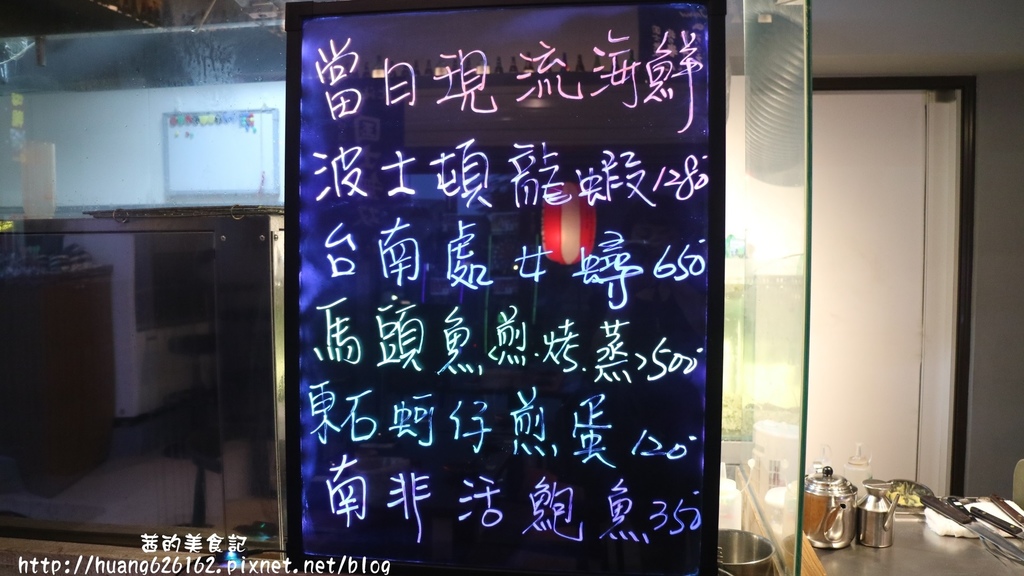 當日現流海鮮
波士頓龍蝦1280
台南處女蟳650
馬頭魚煎.烤.蒸500
東石蚵仔煎蛋120
南非活鮑魚350
茜的美食記
http://huang626162.pixnet.net/blog